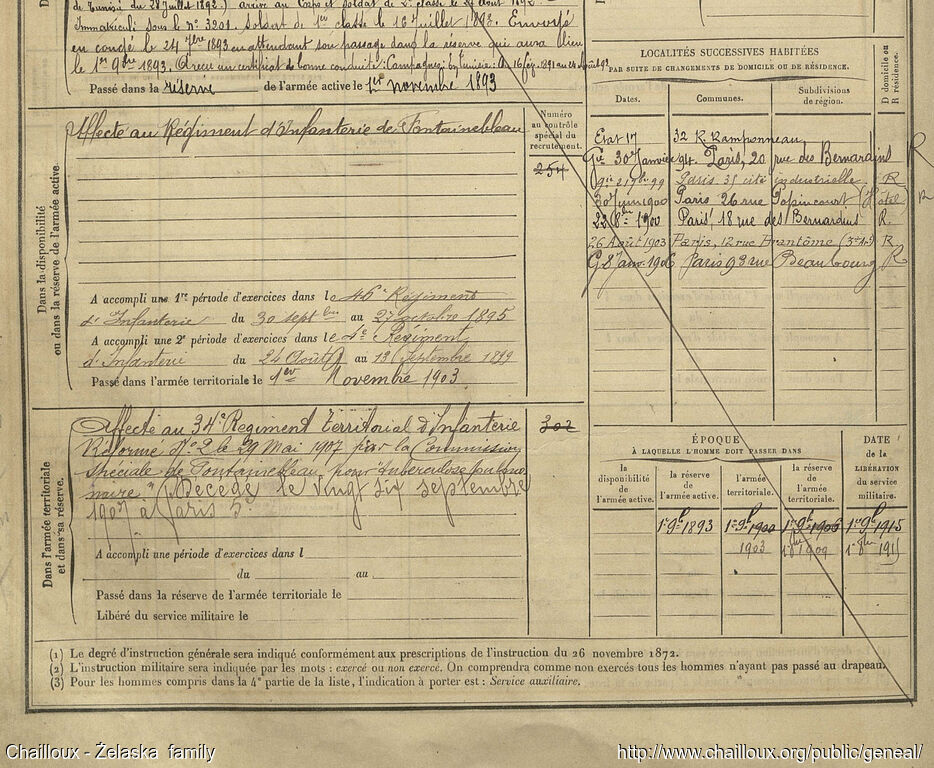 de Tunisie du 28 Juillet 1892) arrivé au Corps et soldat de 2e classe le
Immatriculé sous le No 3201. Soldat de 1re classe le 16 Juillet 1893. Envoyé
en congé le 24 7bre 1893 en attendant son passage dans la réserve qui aura lieu
le 1er 9bre 1893. a reçu un certificat de bonne conduite. Campagnes:
Passé dans la réserve de l'armée active le 1er novembre 1893
Dans la disponibilité
ou dans la réserve de l'armée active.
Affecté au Régiment d'Infanterie de Fontainebleau
Numéro
au contrôle
spécial du
recrutement.
254
A accompli une 1re période d'exercices dans le 46e Régiment
d'Infanterie du 30 septbre au 27 octobre 1895
A accompli une 2e période d'exercices dans le 4e Régiment
d'Infanterie du 24 Août au 13 Septembre 1899
Passé dans l'armée territoriale le 1er Novembre 1903
Dans l'armée territoriale
et dans sa réserve.
Affecté au 34e Régiment territorial d'Infanterie
302
Réformé No 2 le 29 Mai 1907 par la Commission
spéciale de Fontainebleau pour "tuberculose pulmo-
naire." Décédé le vingt six septembre
1907 à Paris 5e
A accompli une période d'exercices dans l
du au
Passé dans la réserve de l'armée territoriale le
Libéré du service militaire le
LOCALITÉS SUCCESSIVES HABITÉES
PAR SUITE DE CHANGEMENTS DE DOMICILE OU DE RÉSIDENCE.
D domicile ou
R résidence.
Dates. Communes. Subdivisions
de région.
32 R Ramponneau
30 Janvier 94. Paris, 20 rue des Bernardins R
99 Paris 35 cité industrielle R
30 Juin 1900 Paris 26 rue Popincourt (Hôtel) R
22 8bre 1900 Paris, 18 rue des Bernardins R.
26 Août 1903 Paris, 12 rue Brantôme (3e Art) R
G 8 Janv. 1906 Paris 93 rue Beaubourg R
ÉPOQUE
À LAQUELLE L'HOMME DOIT PASSER DANS
DATE
de la
LIBÉRATION
du service
militaire.
la
disponibilité
de l'armée active.
la réserve
de
l'armée active.
l'armée
territoriale.
la réserve
de
l'armée
territoriale.
1er 9bre 1893 1er 9bre 1900 1er 9bre 1906 1er 9bre 1915
1903 1909
(1) Le degré d'instruction générale sera indiqué conformément aux prescriptions de l'instruction du 26 novembre 1872.
(2) L'instruction militaire sera indiquée par les mots : exercé ou non exercé. On comprendra comme non exercés tous les hommes n'ayant pas passé au drapeau.
(3) Pour les hommes compris dans la 4e partie de la liste, l'indication à porter est : Service auxiliaire.
Chailloux - Żelaska family
http://www.chailloux.org/public/geneal/